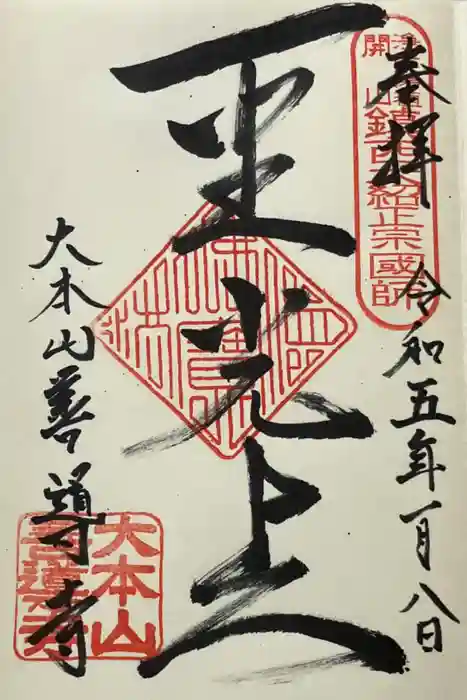 奉拝
令和五年一月八日
浄土
開山
鎮西大紹正宗國師
聖光上人
大本山善導寺
大本山
善導寺